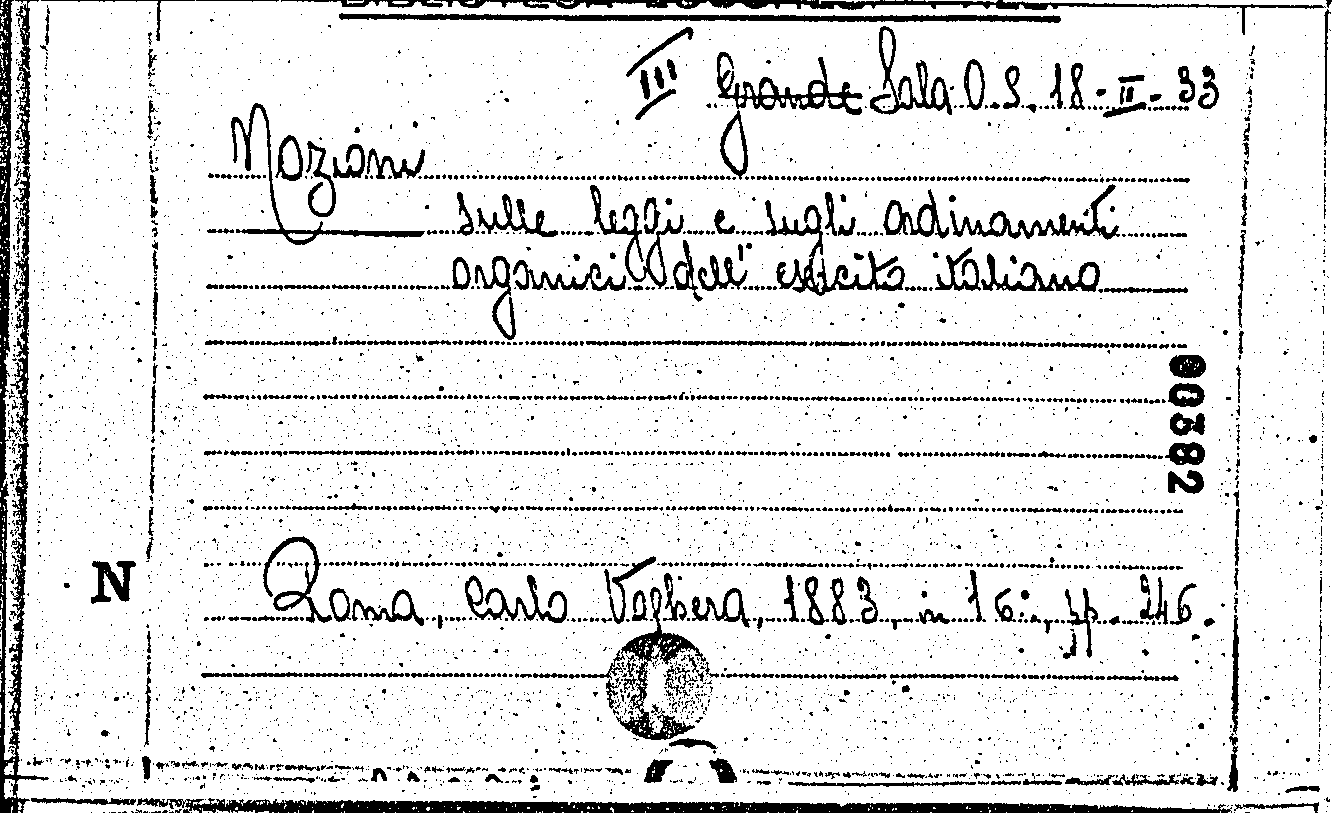 III Grande Sala O.S. 18-II-33
Nozioni
sulle leggi e sugli ordinamenti
organici dell' esercito italiano
00382
N
Roma, Carlo Voghera, 1883, in 16:, pp. 246.